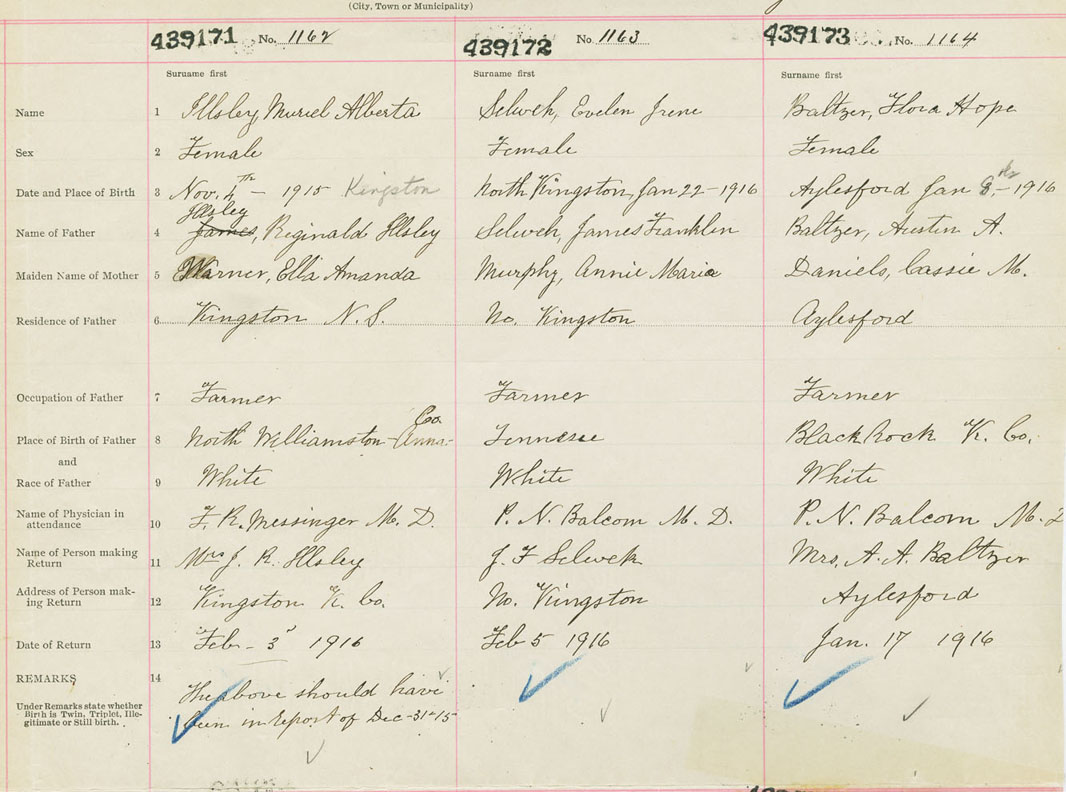 (City, Town or Municipality)
439171 No. 1162 439172 No. 1163 439173 No. 1164
Surname first Surname first Surname first
Name 1 Illsley, Muriel Alberta Selweh, Evelen Irene Baltzer, Flora Hope
Sex 2 Female Female Female
Date and Place of Birth 3 Nov. 4th - 1915 Kingston North Kingston, Jan 22 - 1916 Aylesford Jan 8th - 1916
Illsley
Name of Father 4 James, Reginald Illsley Selweh, James Franklin Baltzer, Austin A.
Maiden Name of Mother 5 Warner, Ella Amanda Murphy, Annie Maria Daniels, Cassie M.
Residence of Father 6 Kingston N.S. No. Kingston Aylesford
Occupation of Father 7 Farmer Farmer Farmer
Co.
Place of Birth of Father 8 North Williamston - Anna- Tennesse Black Rock K. Co.
and
Race of Father 9 White White White
Name of Physician in
attendance 10 F. R. Messinger M. D. P. N. Balcom M. D. P. N. Balcom M. D
Name of Person making
Return 11 Mrs J. R. Illsley J. F Selweh Mrs. A. A. Baltzer
Address of Person mak-
ing Return 12 Kingston K. Co. No. Kingston Aylesford
Date of Return 13 Feb - 3d 1916 Feb 5 1916 Jan. 17 1916
REMARKS 14
The above should have
Under Remarks state whether
Birth is Twin, Triplet, Ille-
gitimate or Still birth. been in report of Dec-31-15